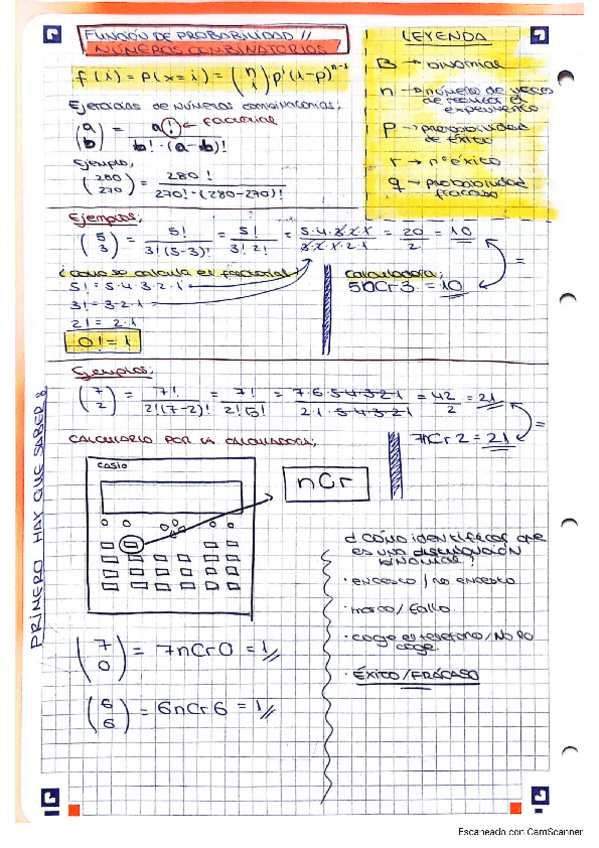 FUNCIÓN DE PROBABILIDAD //
NÚMEROS COMBINATORIOS
f(i) = P(x=i) = (n i) p^i (1-p)^n-i
Ejercicios de números combinatorios;
(a b) = a! ← factorial / b!·(a-b)!
Ejemplo,
(280 270) = 280! / 270!·(280-270)!
LEYENDA
B → binomial
n → número de veces
de repetir el
experimento
P → probabilidad
de éxito
r → nº éxito
q → probabilidad
fracaso
Ejemplos;
(5 3) = 5! / 3!(5-3)! = 5! / 3!2! = 5·4·3·2·1 / 3·2·1·2·1 = 20 / 2 = 10
¿Cómo se calcula el factorial?
5! = 5·4·3·2·1
3! = 3·2·1
2! = 2·1
0! = 1
Calculadora;
5nCr3 = 10
=
Ejemplos;
(7 2) = 7! / 2!(7-2)! = 7! / 2!5! = 7·6·5·4·3·2·1 / 2·1·5·4·3·2·1 = 42 / 2 = 21
7nCr2 = 21
=
CALCULARLO POR LA CALCULADORA;
CASIO
nCr
PRIMERO HAY QUE SABER:
(7 0) = 7nCr0 = 1
(6 6) = 6nCr6 = 1
¿Cómo identificar que
es una distribución
binomial?
· encesto / no encesto
· marco / fallo.
· coge el teléfono / No lo
coge.
· ÉXITO / FRACASO
Escaneado con CamScanner